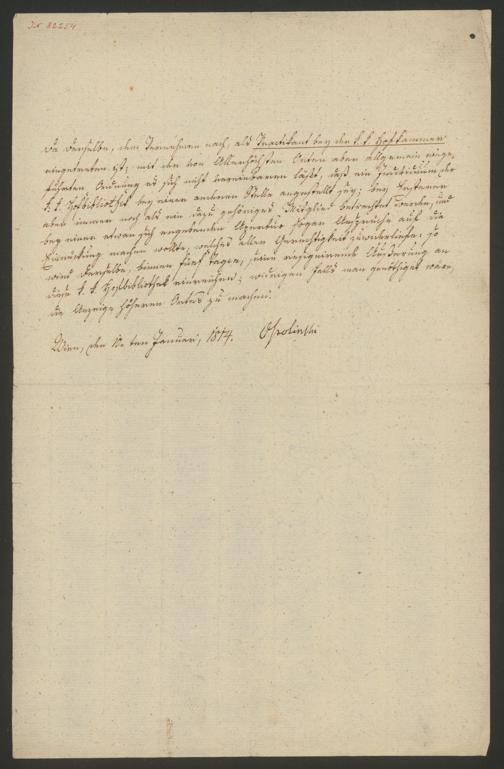 IN 82254
Da derselbe, dem Vernehmen nach, als Practikant bey der k. k. Hofkammer
eingetreten ist; mit der von Allerhöchsten Orten aber allgemein einge-
führten Ordnung es sich nicht vereinbaren läßt, daß ein Individuum der
k. k. Hofbibliothek bey einer anderen Stelle angestellt sey; bey Letzterer
aber immer noch als ein dazu gehöriges Mitglied betrachtet werde, und
bey einer etwan sich ergebenden Apertur sogar Ansprüche auf die
Vorrückung machen wollte, welches allem Gerechtigkeit zuwiderliefe: so
wird derselbe, binnen fünf Tagen, seine resignirende Äußerung an
diese k. k. Hofbibliothek einreichen; widrigen falls man genöthiget wäre,
die Anzeige höheren Ortes zu machen.
Wien, den ten Januar, 1814. Ossolinski